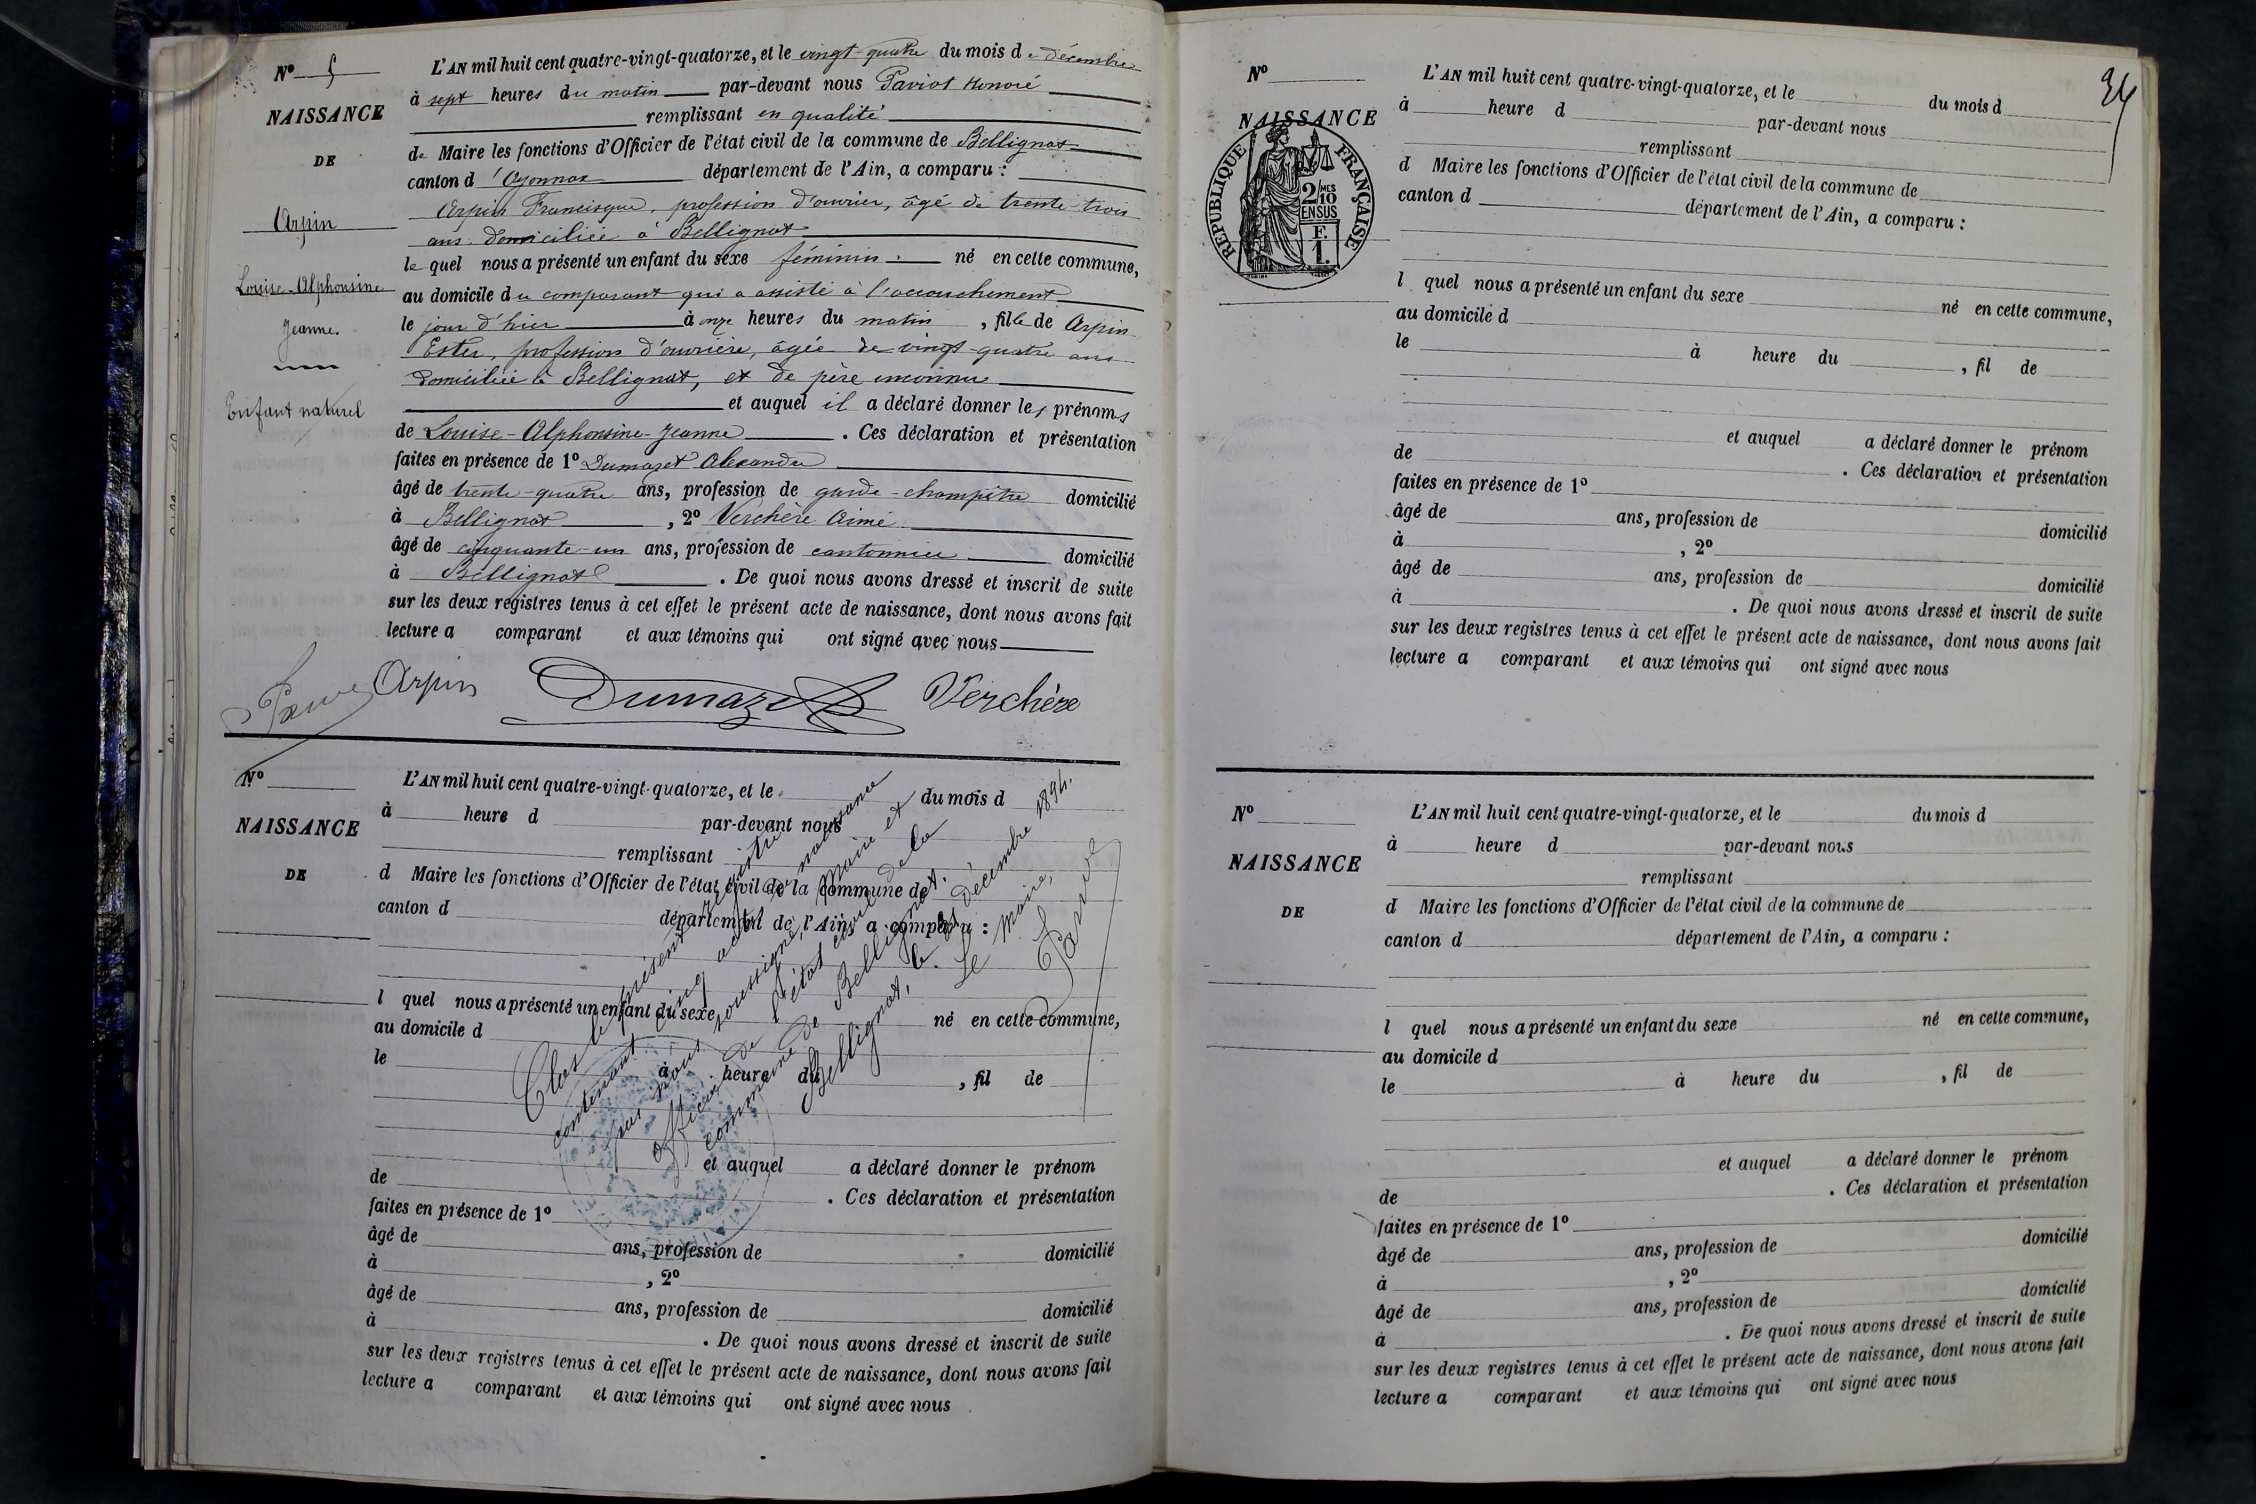 N° 5
NAISSANCE
DE
Arpin
Louise-Alphonsine
Jeanne
Enfant naturel
L'AN mil huit cent quatre-vingt-quatorze, et le vingt-quatre du mois de décembre
à sept heures du matin par-devant nous Paviot Honoré
remplissant en qualité
de Maire les fonctions d'Officier de l'état civil de la commune de Bellignat
canton d'Oyonnax département de l'Ain, a comparu :
Arpin Francisque, profession d'ouvrier, âgé de trente-trois
ans domiciliée à Bellignat
lequel nous a présenté un enfant du sexe féminin né en cette commune,
au domicile du comparant qui a assisté à l'accouchement
le jour d'hier à onze heures du matin, fille de Arpin
Ester, profession d'ouvrière, âgée de vingt-quatre ans
domiciliée à Bellignat, et de père inconnu
et auquel il a déclaré donner les prénoms
de Louise-Alphonsine-Jeanne. Ces déclaration et présentation
faites en présence de 1° Dumazet Alexandre
âgé de trente-quatre ans, profession de garde-champêtre domicilié
à Bellignat, 2° Verchère Aimé
âgé de cinquante-un ans, profession de cantonnier domicilié
à Bellignat. De quoi nous avons dressé et inscrit de suite
sur les deux registres tenus à cet effet le présent acte de naissance, dont nous avons fait
lecture a comparant et aux témoins qui ont signé avec nous
Arpin Dumazet Verchère
N°
NAISSANCE
DE
L'AN mil huit cent quatre-vingt-quatorze, et le du mois d
à heure d par-devant nous
remplissant
d Maire les fonctions d'Officier de l'état civil de la commune de
canton d département de l'Ain, a comparu :
l quel nous a présenté un enfant du sexe né en cette commune,
au domicile d
le à heure du , fil de
et auquel a déclaré donner le prénom
de . Ces déclaration et présentation
faites en présence de 1°
âgé de ans, profession de domicilié
à , 2°
âgé de ans, profession de domicilié
à . De quoi nous avons dressé et inscrit de suite
sur les deux registres tenus à cet effet le présent acte de naissance, dont nous avons fait
lecture a comparant et aux témoins qui ont signé avec nous
Clos le présent registre
contenant cinq actes de naissance
par nous soussigné, Maire et
officier de l'état civil de la
commune de Bellignat.
Bellignat, le décembre 1894.
Le Maire,
34
N°
NAISSANCE
RÉPUBLIQUE FRANÇAISE
2/10 MES
EN SUS
F.
1.
L'AN mil huit cent quatre-vingt-quatorze, et le du mois d
à heure d par-devant nous
remplissant
d Maire les fonctions d'Officier de l'état civil de la commune de
canton d département de l'Ain, a comparu :
l quel nous a présenté un enfant du sexe né en cette commune,
au domicile d
le à heure du , fil de
et auquel a déclaré donner le prénom
de . Ces déclaration et présentation
faites en présence de 1°
âgé de ans, profession de domicilié
à , 2°
âgé de ans, profession de domicilié
à . De quoi nous avons dressé et inscrit de suite
sur les deux registres tenus à cet effet le présent acte de naissance, dont nous avons fait
lecture a comparant et aux témoins qui ont signé avec nous
N°
NAISSANCE
DE
L'AN mil huit cent quatre-vingt-quatorze, et le du mois d
à heure d par-devant nous
remplissant
d Maire les fonctions d'Officier de l'état civil de la commune de
canton d département de l'Ain, a comparu :
l quel nous a présenté un enfant du sexe né en cette commune,
au domicile d
le à heure du , fil de
et auquel a déclaré donner le prénom
de . Ces déclaration et présentation
faites en présence de 1°
âgé de ans, profession de domicilié
à , 2°
âgé de ans, profession de domicilié
à . De quoi nous avons dressé et inscrit de suite
sur les deux registres tenus à cet effet le présent acte de naissance, dont nous avons fait
lecture a comparant et aux témoins qui ont signé avec nous